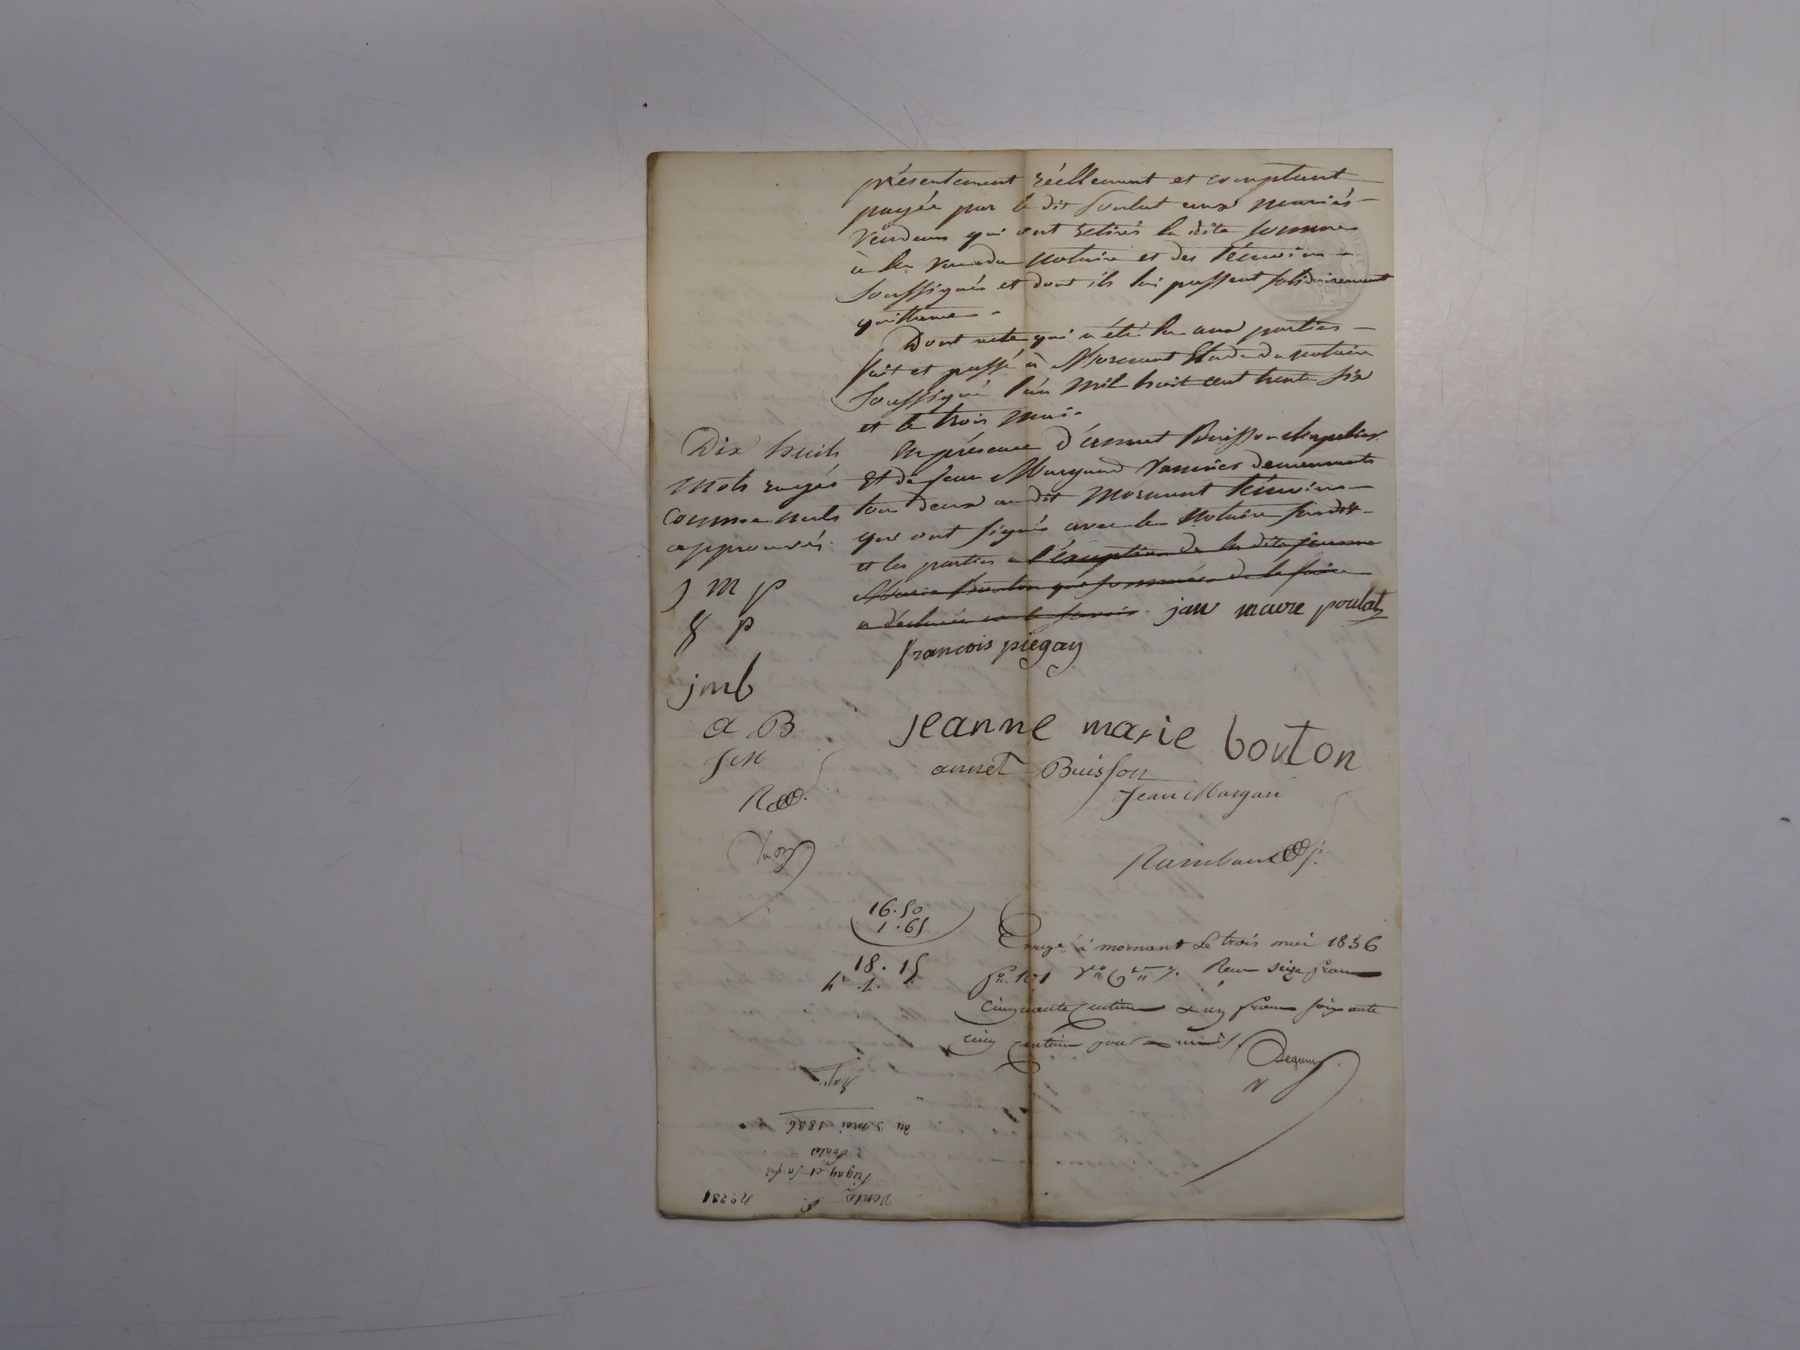 présentement réellement et comptant
payée par le dit Poulat aux mariés
vendeurs qui ont retirés la dite somme
à la vue du notaire et des témoins
soussignés et dont ils lui passent solidairement
quittance.
Dont acte qui a été lu aux parties
fait et passé à Mornant Etude du notaire
soussigné l'an mil huit cent trente six
et le trois mai.
En présence d'annet Buisson chapelier
Et de Jean Margand Vannier demeurants
tou deux au dit Mornant témoins
qui ont signés avec le Notaire susdit
et les parties a l'exception de la dite femme
Marie Bouton qui sommée de le faire
a déclarée ne le savoir. jan marie poulat
francois piegay
jeanne marie bouton
annet Buisson
Jean Margan
Dix huit
mots rayés
comme nuls
approuvés
J m p
f p
jmb
a B
J M
16.50
1.65
18.15
Enregé à mornant Le trois mai 1836
fo. 101 Vo Cen 7. Reçu seize francs
cinquante centimes & un franc soixante
cinq centimes pour
du 3 mai 1836
Piegay et sa fe
à Poulat
Vente
No. 281